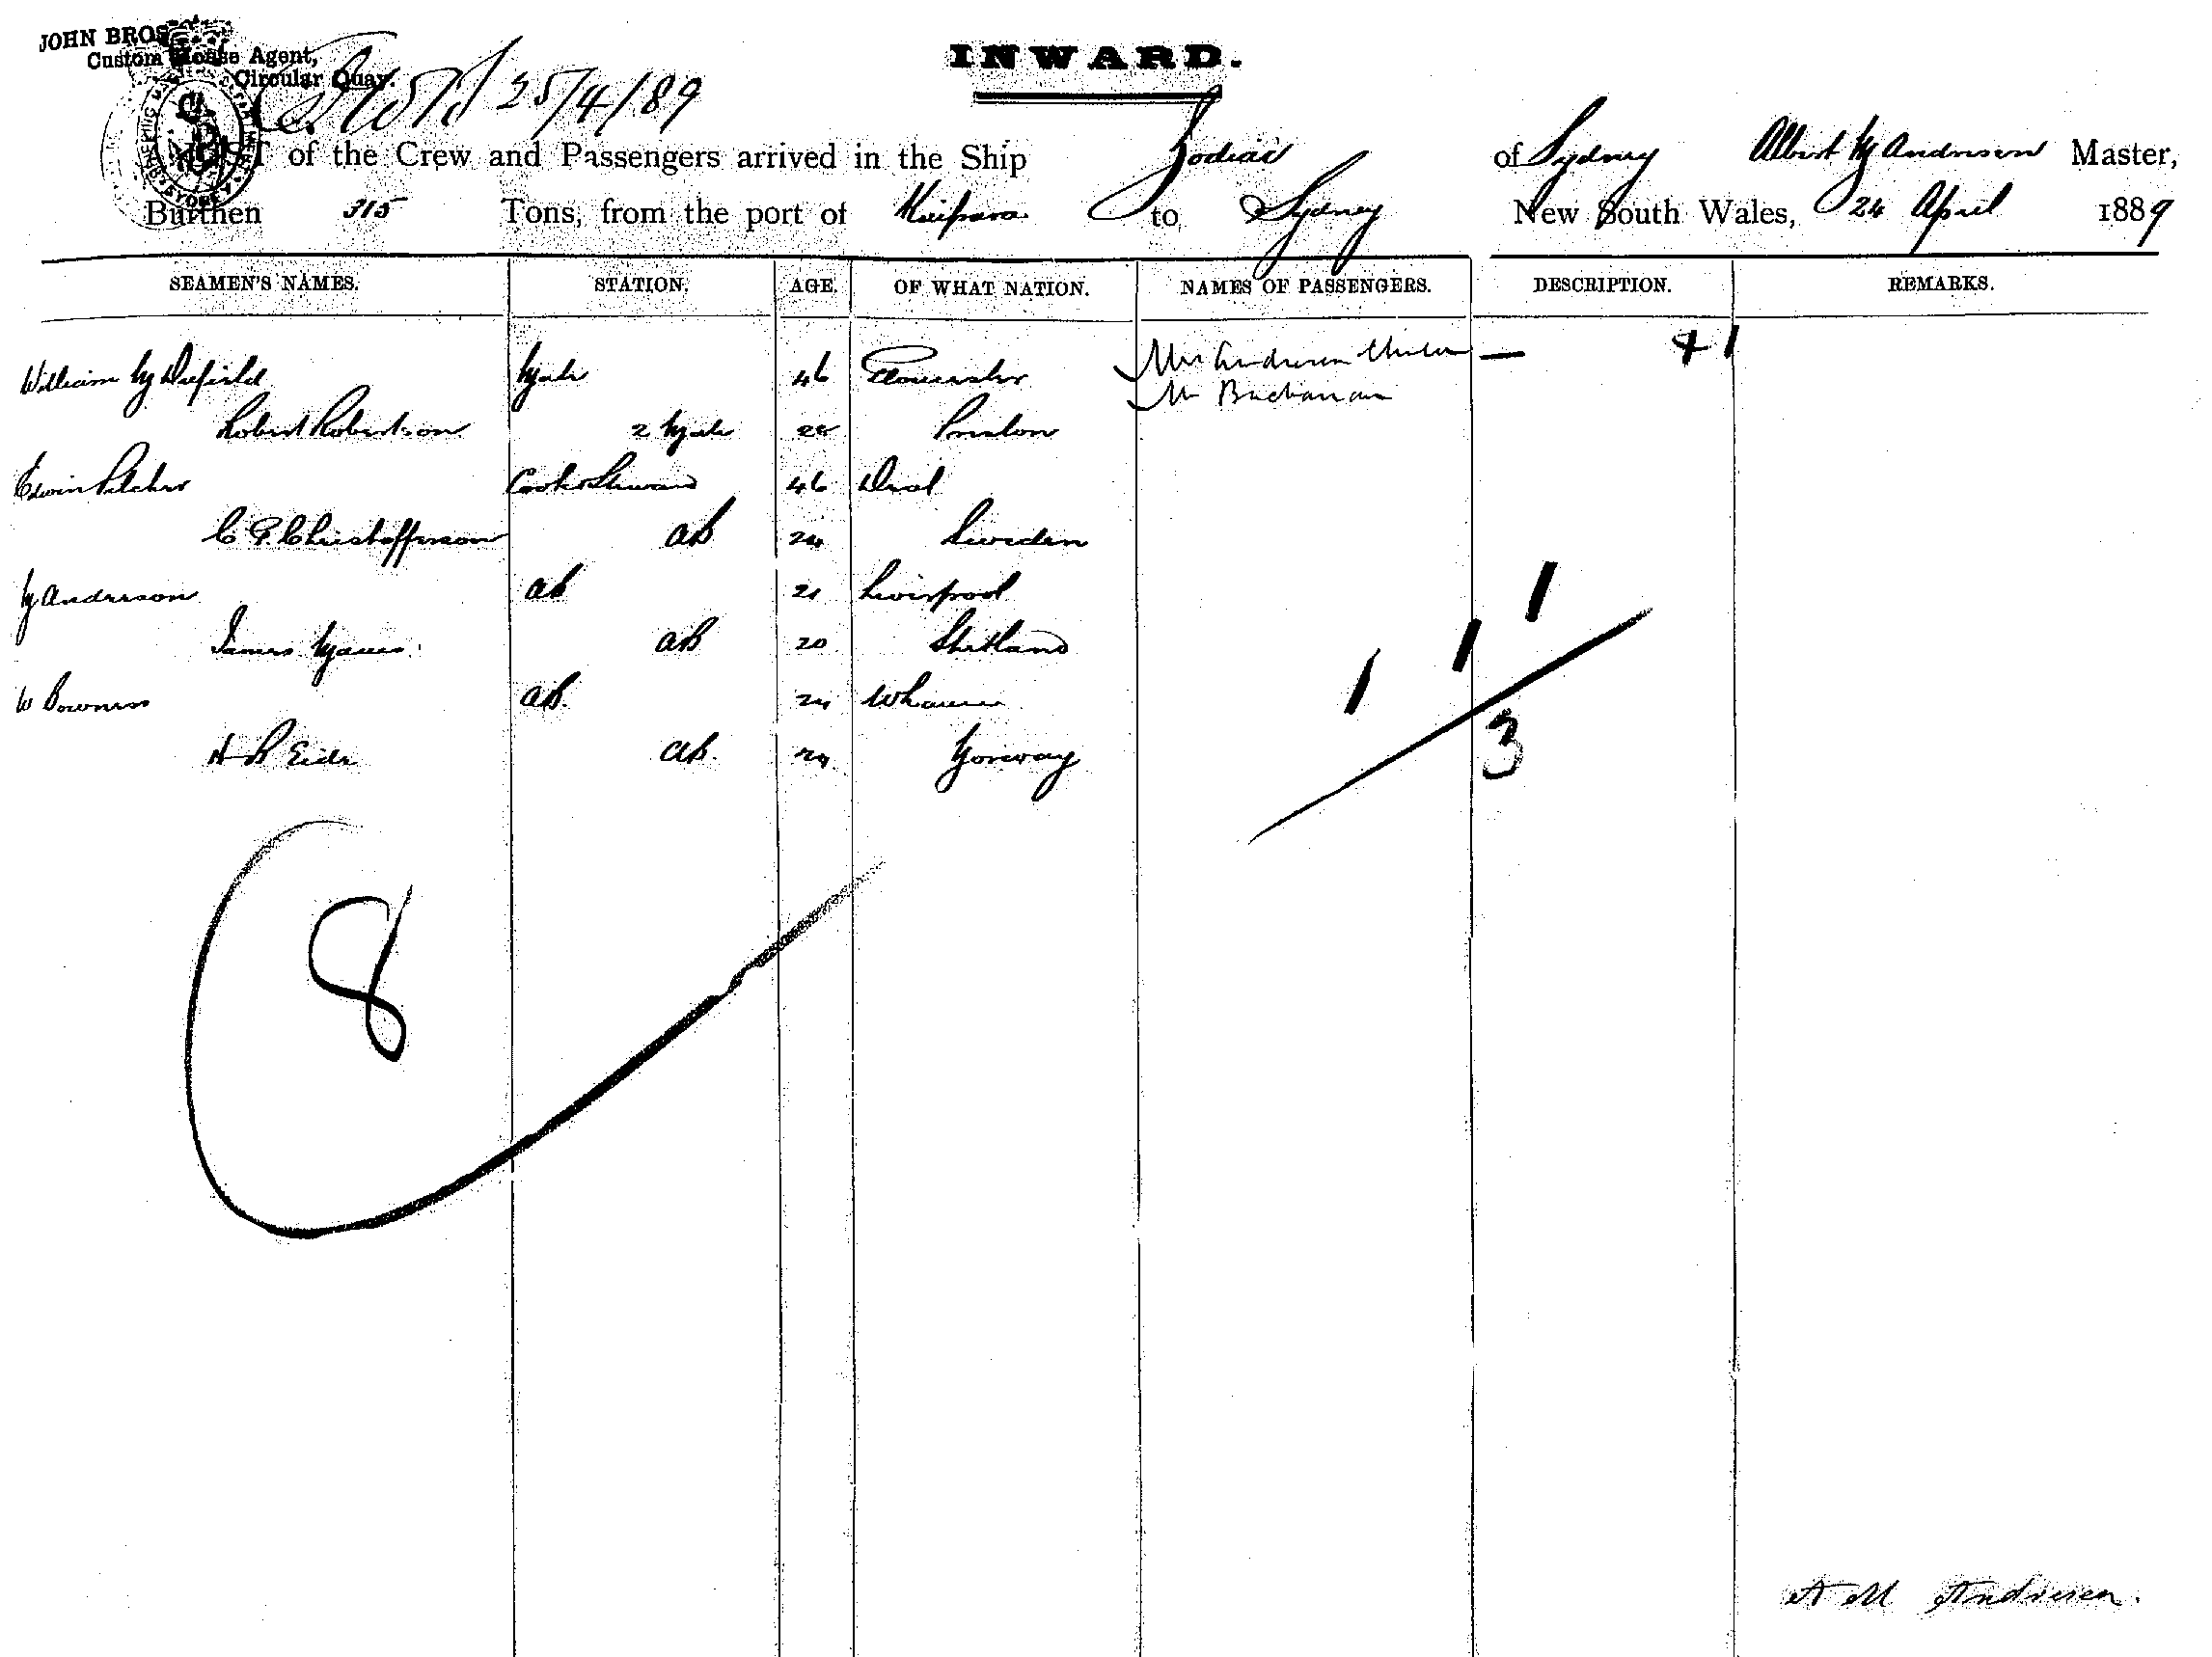 JOHN BROS
Custom House Agent,
Circular Quay.
25/4/89
INWARD.
LIST of the Crew and Passengers arrived in the Ship Zodiac of Sydney Albert M Andresen Master,
Burthen 315 Tons, from the port of Kaipara to Sydney New South Wales, 24 April 1889
SEAMEN'S NAMES. STATION. AGE. OF WHAT NATION. NAMES OF PASSENGERS. DESCRIPTION. REMARKS.
William M Mate 46 Gloucester Mrs Andresen — + 1
Mr Buchanan
Robert Robertson 2 Mate Preston
Edwin Pilcher Cook & Steward 46 Deal
C P Christofferson AB 24 Sweden
M Anderson AB 21 Liverpool
James AB 20 Shetland
W AB. 24
H P Eide AB. 24 Norway
1 1 1
3
8
A M Andresen.